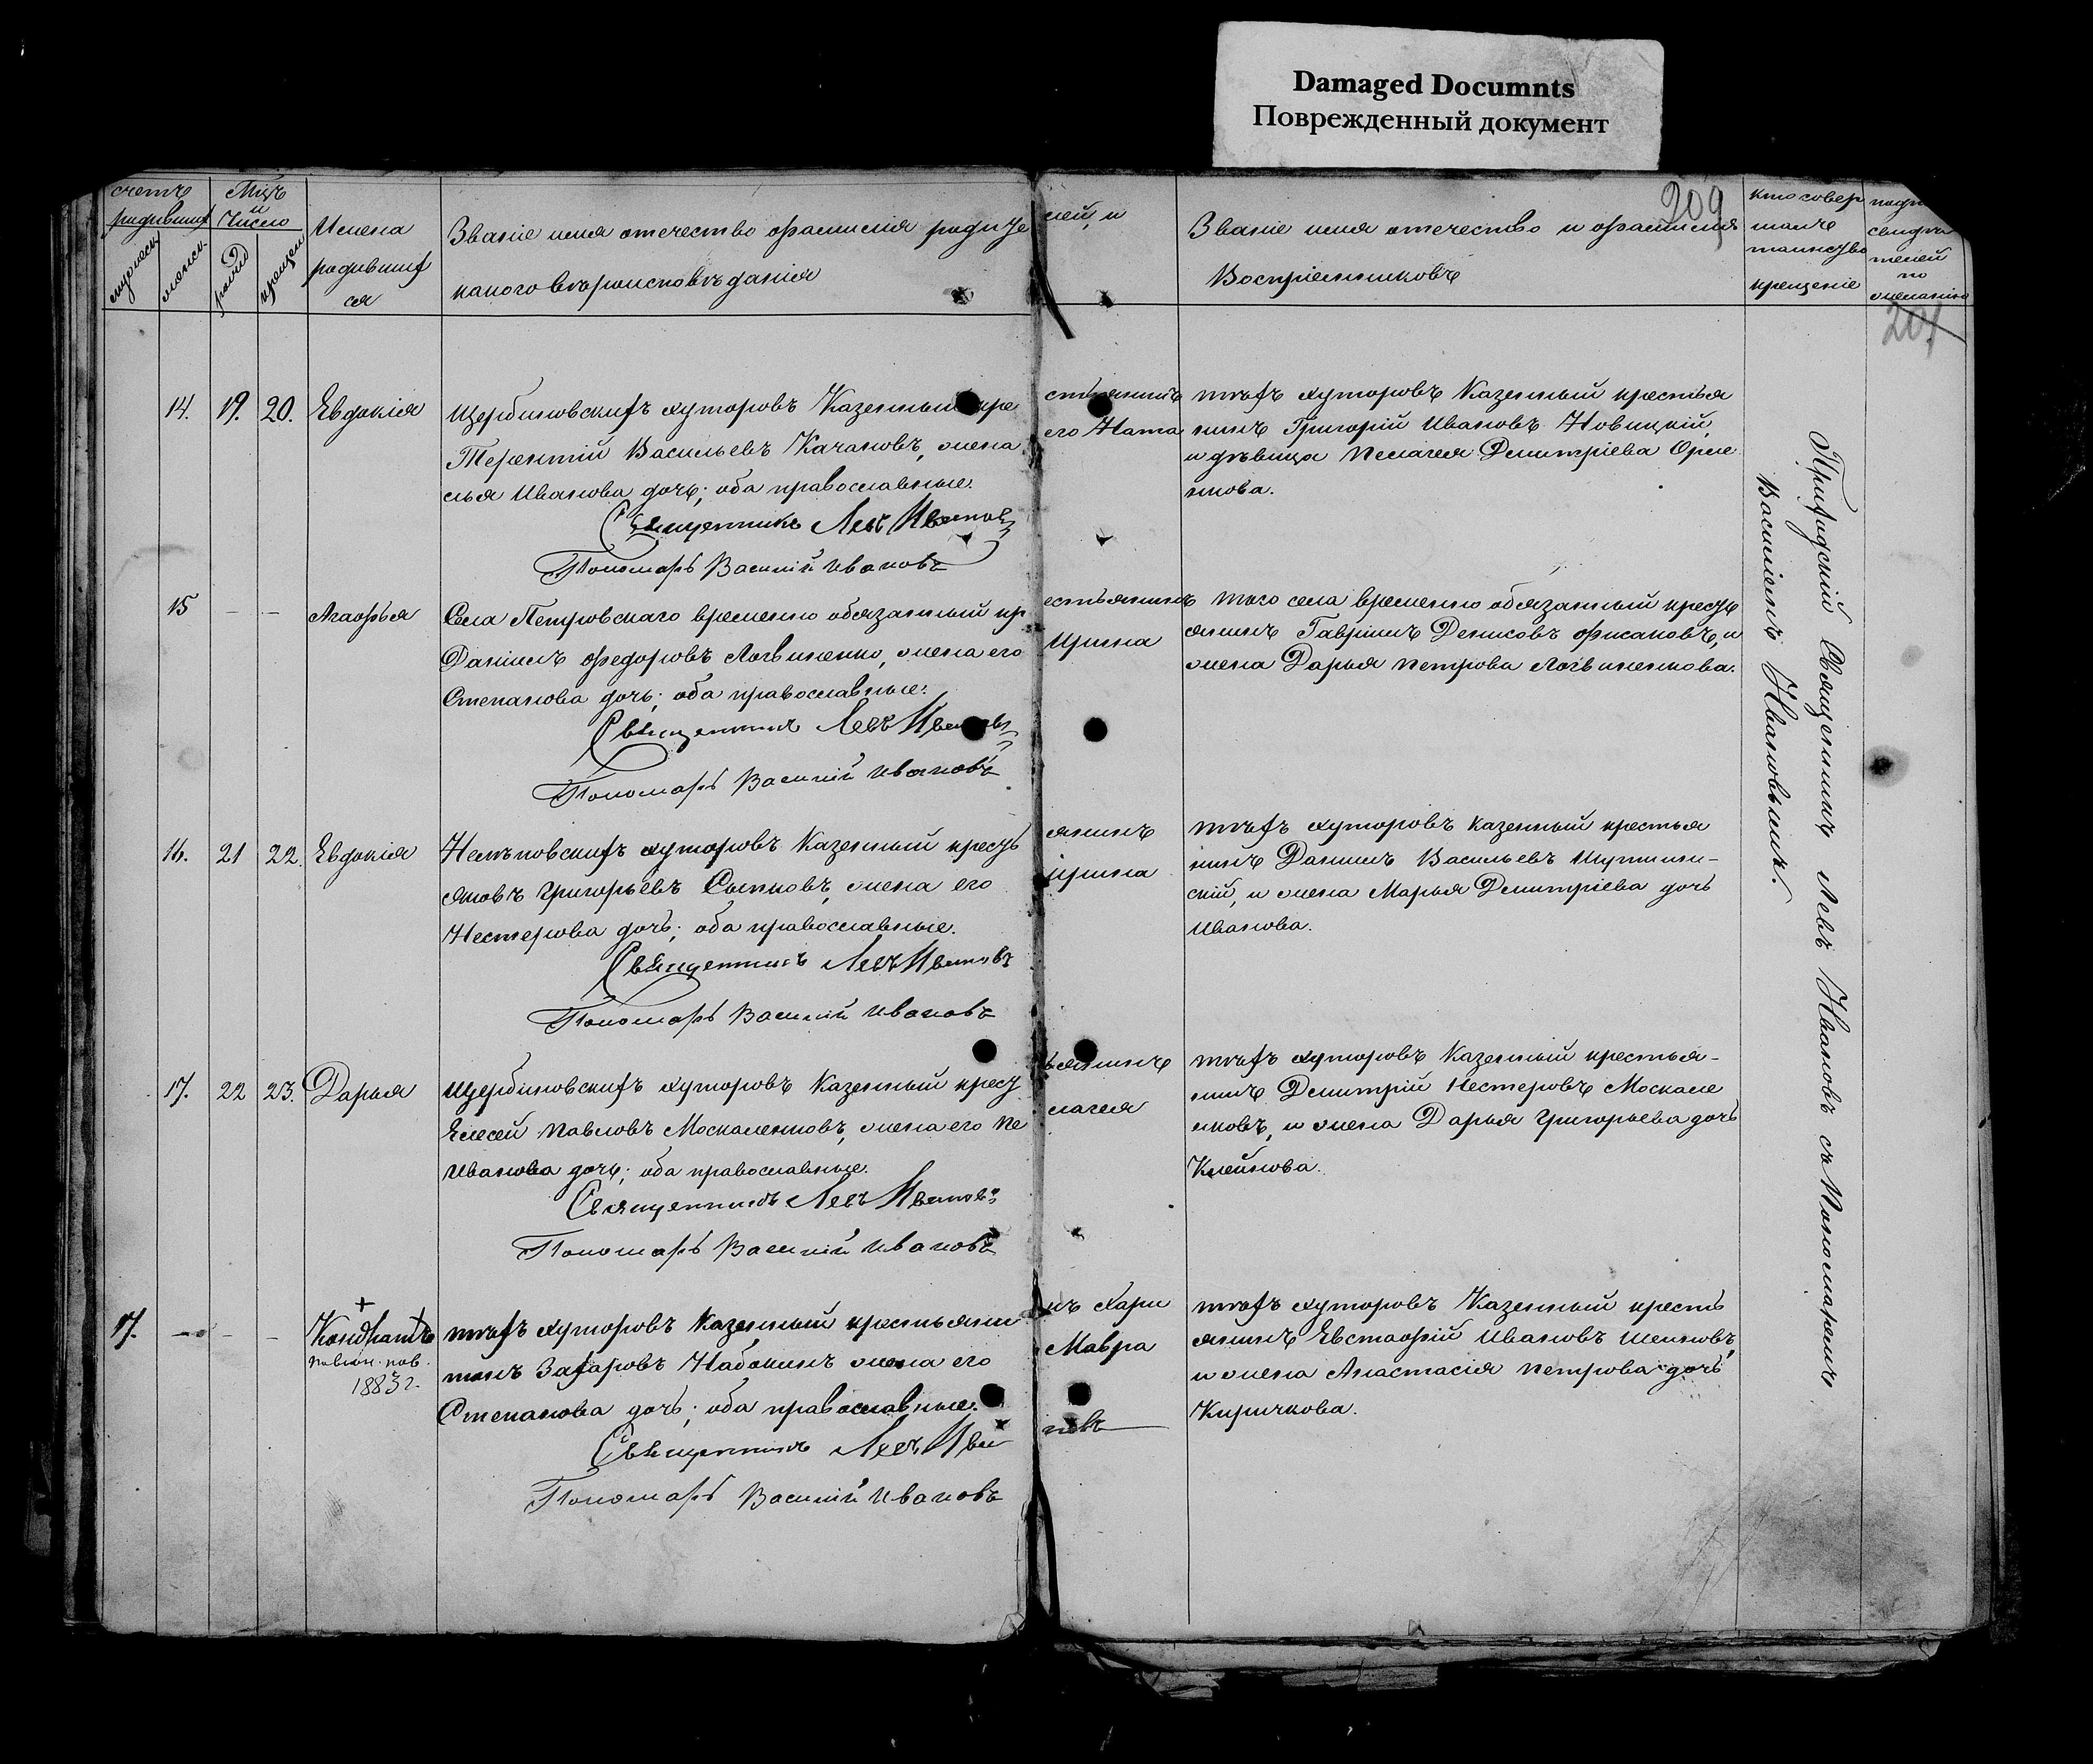 Damaged Documnts
Поврежденный документ
209
207
счетъ родившихъ
мужеска
женска
Мцъ и Число
рожд
крещен
Имена родившихся
Званіе имя отечество фамилія родителей, и
какого вѣроисповѣданія
Званіе имя отечество и фамилія
Воспріемниковъ
кто совер
шалъ
таинство
крещеніе
свидѣ
телей
по
желанію
14. 19. 20. Евдокія
Щербиновскихъ хуторовъ Казенный крестьянинъ
Терентій Васильевъ Качановъ, жена его Ната
лья Иванова дочь; оба православные.
Священникъ Левъ Ивановъ
Пономарь Василій Ивановъ
тѣхъ хуторовъ Казенный крестья
нинъ Григорій Ивановъ Новицкій,
и дѣвица Пелагея Дмитріева
15 — — Агафья
Села Петровскаго временно обязанный крестьянинъ
Даніилъ Федоровъ Логвиненко, жена его Ирина
Степанова дочь; оба православные.
Священникъ Левъ Ивановъ
Пономарь Василій Ивановъ
того села временно обязанный кресть
янинъ Гавріилъ Денисовъ Фисановъ, и
жена Дарья Петрова Логвиненкова.
16. 21 22. Евдокія
хуторовъ Казенный крестьянинъ
Яковъ Григорьевъ жена его Ирина
Нестерова дочь; оба православные.
Священникъ Левъ Ивановъ
Пономарь Василій Ивановъ
тѣхъ хуторовъ казенный крестья
нинъ Даніилъ Васильевъ
скій, и жена Марья Дмитріева дочь
Иванова.
17. 22 23. Дарья
Щербиновскихъ хуторовъ Казенный крестьянинъ
Елесей Павловъ Москаленковъ, жена его Пелагея
Иванова дочь; оба православные.
Священникъ Левъ Ивановъ
Пономарь Василій Ивановъ
тѣхъ хуторовъ Казенный крестья-
нинъ Дмитрій Нестеровъ Москале
нковъ, и жена Дарья Григорьева дочь
Клейнова.
17. — — — Кондратъ
1883 г.
тѣхъ хуторовъ Казенный крестьянинъ Хари
тонъ Захаровъ Набокинъ жена его Мавра
Степанова дочь; оба православные.
Священникъ Левъ Ивановъ
Пономарь Василій Ивановъ
тѣхъ хуторовъ Казенный кресть
янинъ Евстафій Ивановъ Шеиковъ,
и жена Анастасія Петрова дочь
Киричкова.
Приходскій Священникъ Левъ Ивановъ съ Пономаремъ
Василіемъ Ивановымъ.